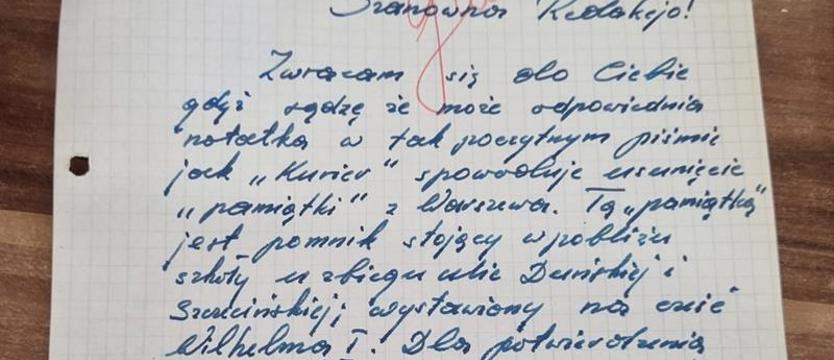 Szanowna Redakcjo!
Zwracam się do Ciebie
gdyż sądzę że może odpowiednia
notatka w tak poczytnym piśmie
jak „Kurier" spowoduje usunięcie
„pamiątki" z Warszewa. Tą „pamiątką"
jest pomnik stojący w pobliżu
szkoły u zbiegu ulic Duńskiej i
Szczecińskiej, wystawiony na cześć
Wilhelma I. Dla potwierdzenia